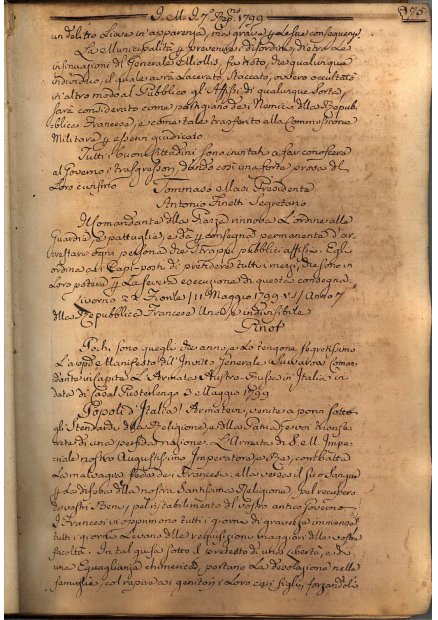 75
un delitto Lieve in apparenza, ma grave p le sue conseguenze
La Municipalità p prevenire i disordini, dietro Le
insinuazioni del Generale Miollis, fa noto, che qualunque
individuo, il quale averà Lacerato, Staccato, ovvero occultato
in altro modo al Pubblico gli Affissi di qualunque Sorta,
sarà considerato come partigiano dei Nemici della Repub
blica Francese, e come tale trasferito alla Commissione
Militare p esservi giudicato
Tutti i buoni Cittadini sono invitati a far conoscere
al Governo i trasgressori, dando così una forte prova del
Loro civismo Tommaso Presidente
Antonio Segretario
Il Comandante della Piazza rinnova L'ordine alle
Guardie, e pattuglie, e dà p consegna permanente d'ar
restare ogni persona che strappi pubblici affissi. Egli
ordina ai Capi-posti di prendere tutti i mezzi, che sono in
Loro potere p La severa esecuzione di questa consegna
Livorno 22 Fiorile / 11 Maggio 1799 v.s / Anno 7
della Repubblica Francese Una, e indivisibile
Pinot
Pochi sono quegli che anno, e Lo tengono segretissimo
La copia Manifesto dell'Invitto Generale Suwarow Coman
dante in Capite L'Armata Austro-Russa in Italia in
data di Casal Pusterlengo 3 Maggio 1799
Popoli d'Italia! Armatevi, venite a porvi sotto
gli Stendardi della Religione, e della Patria, e voi trionfe
rete di una perfida nazione. L'Armata di S. M. Impe-
riale nostro Augustissimo Imperatore, e Re, combatte
La malvagità dei Francesi, ella versa il suo Sangue
p La difesa della nostra Santissima Religione, pel recupero
de vostri Beni, pel ristabilimento del vostro antico Governo
I Francesi vi opprimono tutti i giorni di gravezze immense
tutti i giorni Levano delle requisizioni maggiori delle vostre
facoltà. In tal guisa sotto il pretesto di una Libertà, e di
una Eguaglianza chimerica, portano La desolazione nelle
famiglie, col rapire ai genitori i Loro cari figli, forzandoli